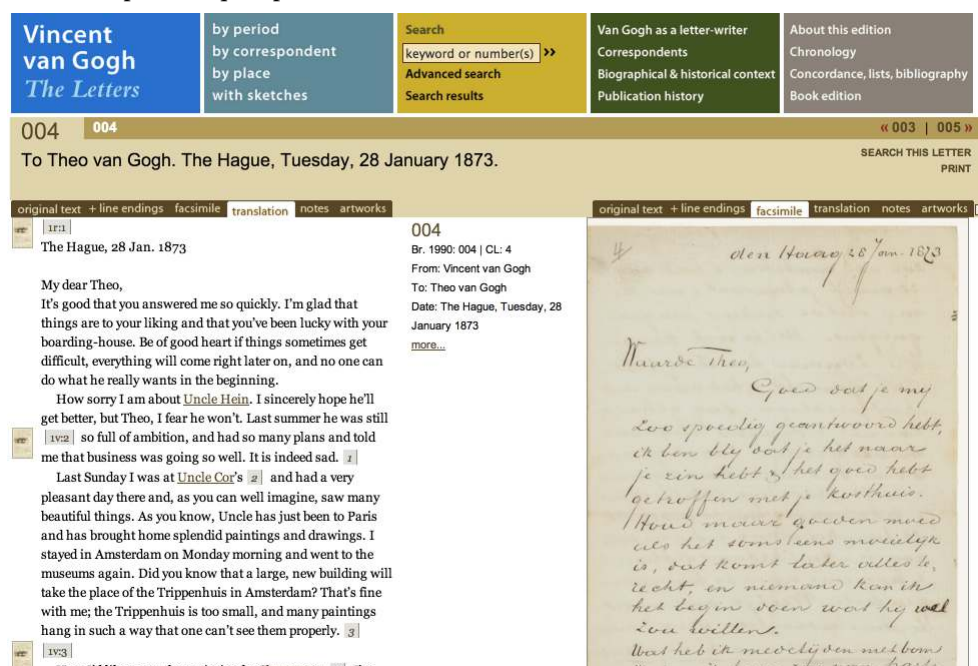 Vincent
van Gogh
The Letters
by period
by correspondent
by place
with sketches
Search
keyword or number(s) »
Advanced search
Search results
Van Gogh as a letter-writer
Correspondents
Biographical & historical context
Publication history
About this edition
Chronology
Concordance, lists, bibliography
Book edition
004 004 « 003 | 005 »
To Theo van Gogh. The Hague, Tuesday, 28 January 1873.
SEARCH THIS LETTER
PRINT
original text + line endings facsimile translation notes artworks
1r:1
The Hague, 28 Jan. 1873
My dear Theo,
It's good that you answered me so quickly. I'm glad that
things are to your liking and that you've been lucky with your
boarding-house. Be of good heart if things sometimes get
difficult, everything will come right later on, and no one can
do what he really wants in the beginning.
How sorry I am about Uncle Hein. I sincerely hope he'll
get better, but Theo, I fear he won't. Last summer he was still
1v:2 so full of ambition, and had so many plans and told
me that business was going so well. It is indeed sad. 1
Last Sunday I was at Uncle Cor's 2 and had a very
pleasant day there and, as you can well imagine, saw many
beautiful things. As you know, Uncle has just been to Paris
and has brought home splendid paintings and drawings. I
stayed in Amsterdam on Monday morning and went to the
museums again. Did you know that a large, new building will
take the place of the Trippenhuis in Amsterdam? That's fine
with me; the Trippenhuis is too small, and many paintings
hang in such a way that one can't see them properly. 3
1v:3
004
Br. 1990: 004 | CL: 4
From: Vincent van Gogh
To: Theo van Gogh
Date: The Hague, Tuesday, 28
January 1873
more...
original text + line endings facsimile translation notes artworks
4 den Haag 28 Jan. 1873
Waarde Theo,
Goed dat je mij
zoo spoedig geantwoord hebt,
ik ben blij dat je het naar
je zin hebt & het goed hebt
getroffen met je kosthuis.
Houd maar goeden moed
als het soms eens moeielijk
is, dat komt later alles te
recht, en niemand kan in
het begin doen wat hij wel
zou willen.
Wat heb ik medelijden met oom